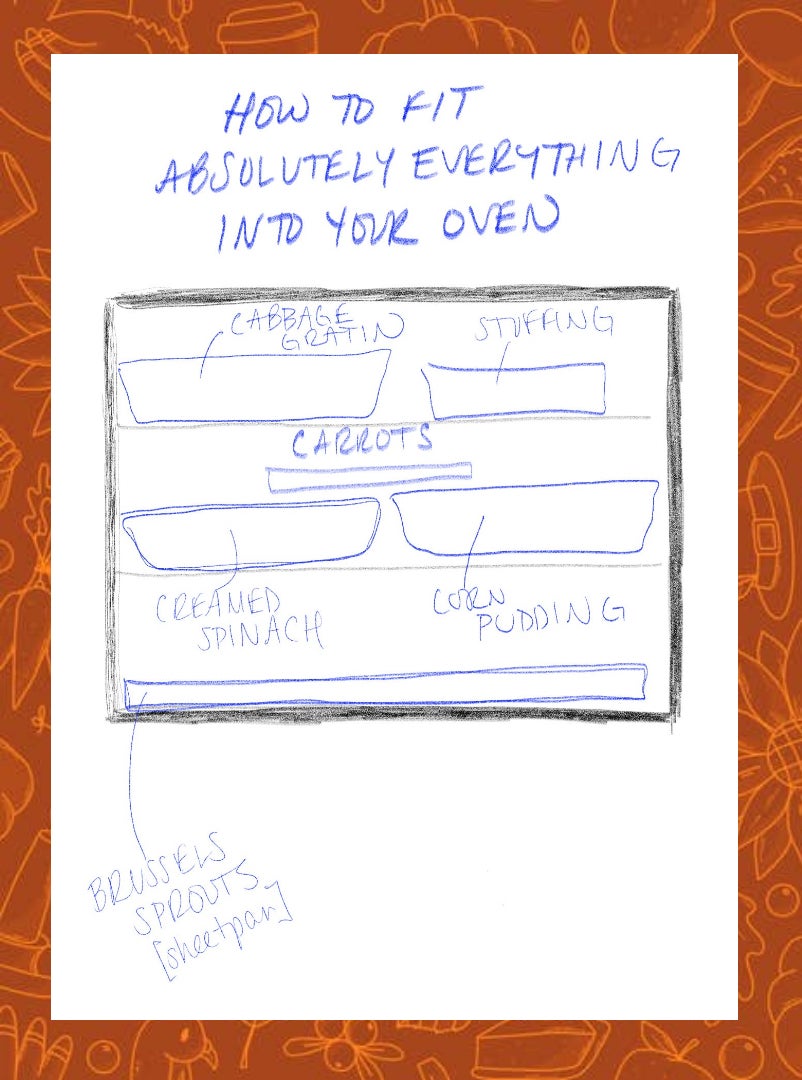 HOW TO FIT
ABSOLUTELY EVERYTHING
INTO YOUR OVEN
CABBAGE
GRATIN
STUFFING
CARROTS
CREAMED
SPINACH
CORN
PUDDING
BRUSSELS
SPROUTS
[sheetpan]